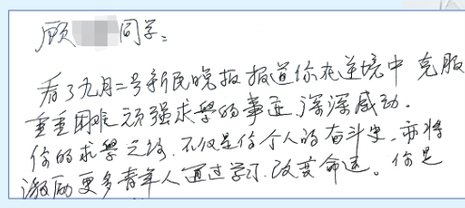 顾 同学:
看了九月二号新民晚报报道你在逆境中克服
重重困难顽强求学的事迹,深深感动。
你的求学之路,不仅是你个人的奋斗史,亦将
激励更多青年人通过学习,改变命运。你是